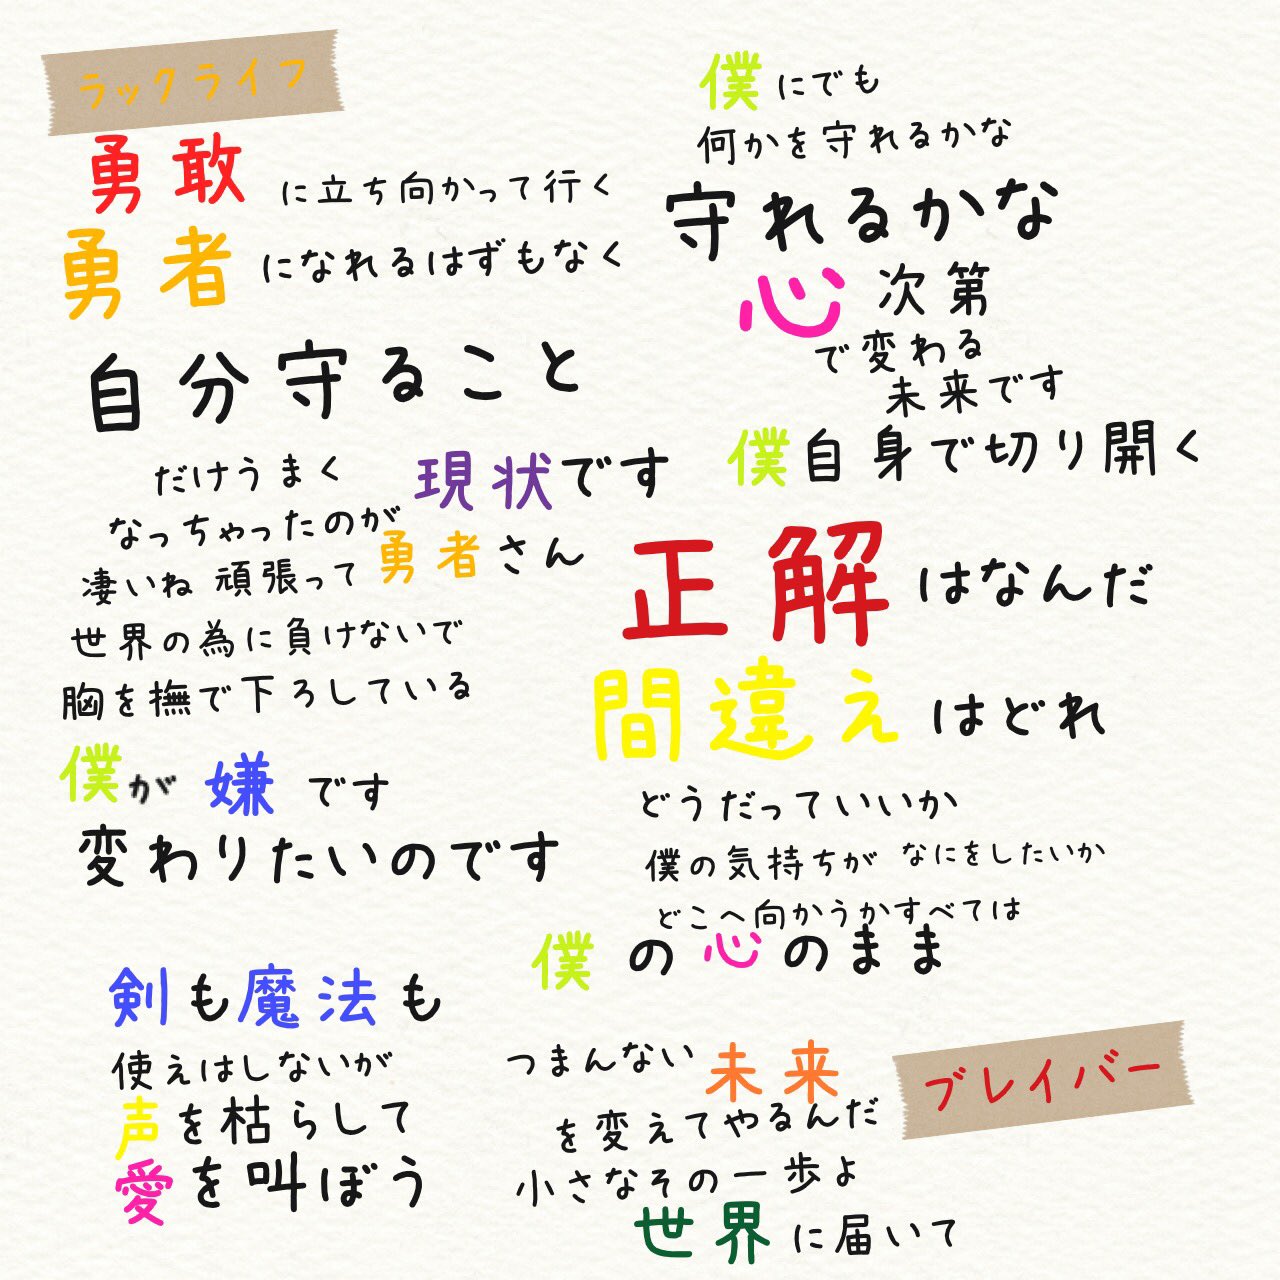 ラックライフ
勇敢に立ち向かって行く
勇者になれるはずもなく
自分守ること
だけうまく
なっちゃったのが現状です
凄いね 頑張って勇者さん
世界の為に負けないで
胸を撫で下ろしている
僕が嫌です
変わりたいのです
剣も魔法も
使えはしないが
声を枯らして
愛を叫ぼう
僕にでも
何かを守れるかな
守れるかな
心次第
で変わる
未来です
僕自身で切り開く
正解はなんだ
間違えはどれ
どうだっていいか
僕の気持ちが なにをしたいか
どこへ向かうかすべては
僕の心のまま
つまんない未来
を変えてやるんだ
小さなその一歩よ
世界に届いて
ブレイバー